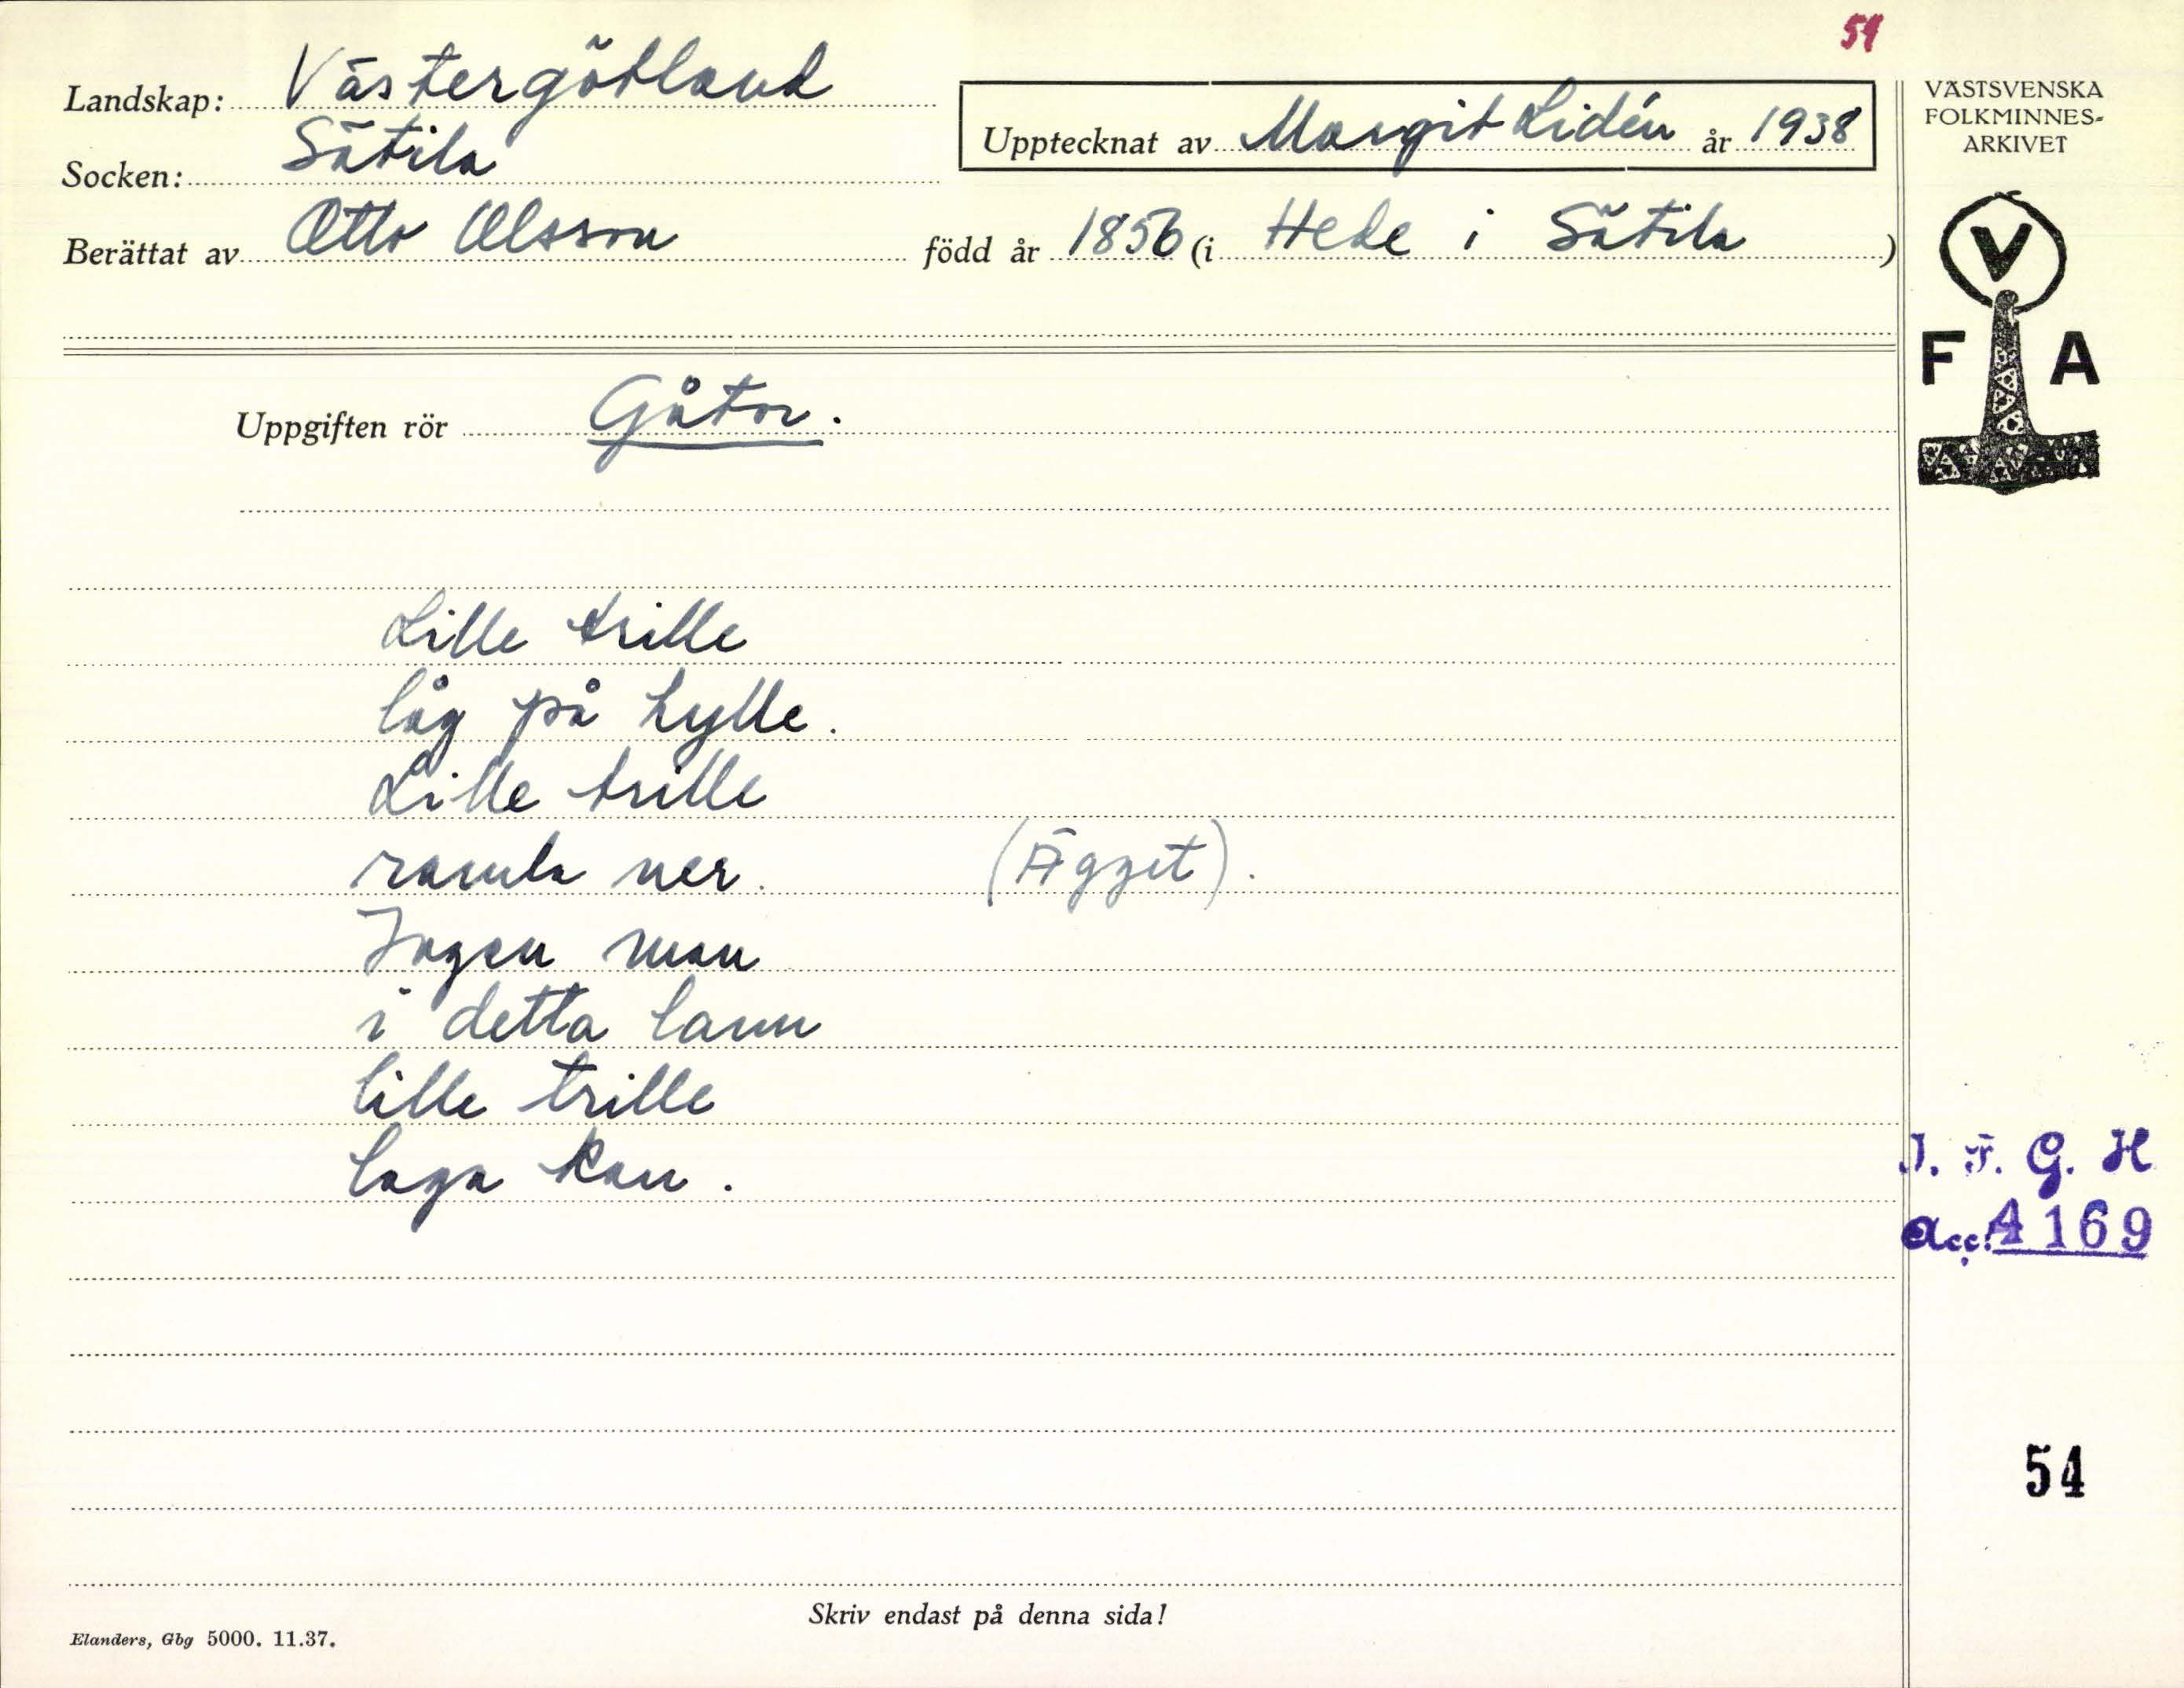 54
Landskap: Västergötland
Upptecknat av Margit Lidén år 1938
Socken: Sätila
Berättat av Otto Olsson född år 1856 (i Hede i Sätila)
Uppgiften rör Gåtor.
Lille trille
låg på hylle.
Lille trille
ramla ner.
(Ägget).
Ingen man
i detta lann
lille trille
laga kan.
Skriv endast på denna sida!
Elanders, Gbg 5000. 11.37.
VÄSTSVENSKA
FOLKMINNES-
ARKIVET
V
F A
I. F. G. H
Acc. 4169
54